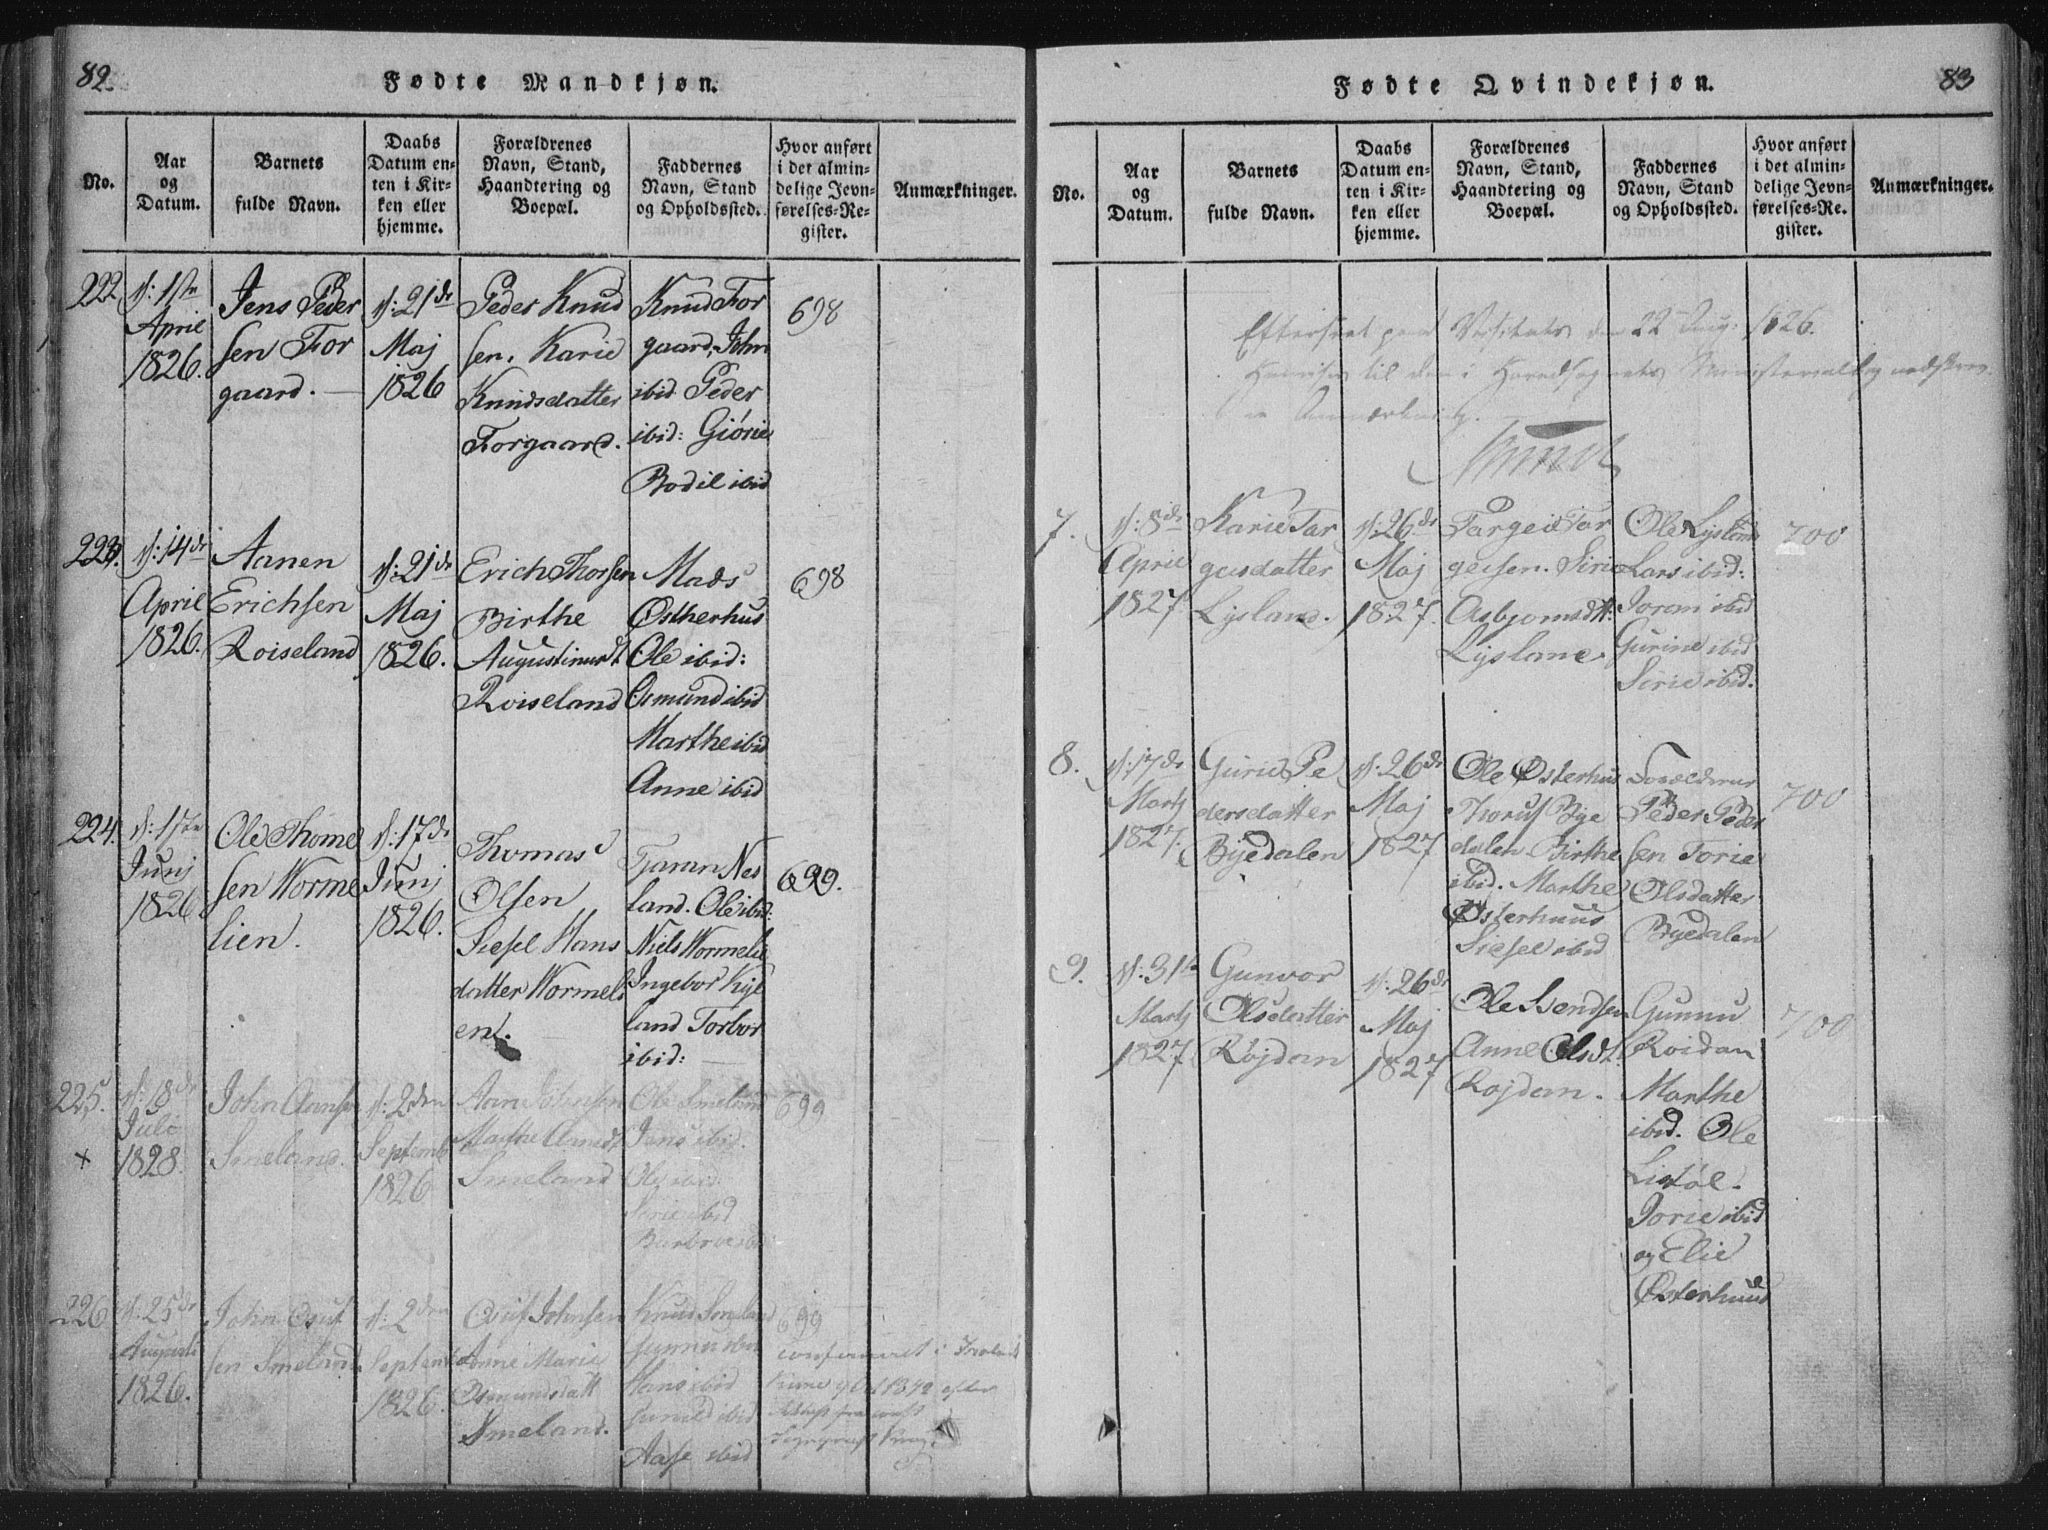 82.
Fødte Mandkjøn.
No.
Aar
og
Datum.
Barnets
fulde Navn.
Daabs
Datum en-
ten i Kir-
ken eller
hjemme.
Forældrenes
Navn, Stand,
Haandtering og
Boepæl.
Faddernes
Navn, Stand
og Opholdssted.
Hvor anført
i det almin-
delige Jevn-
førelses-Re-
gister.
Anmærkninger.
222
d: 1ste
April
1826.
Jens Peder
sen For
gaard. —
d: 21de
Maj
1826
Peder Knud
sen, Karie
Knudsdatter
Forgaard.
Knud For
gaard, John
ibid Peder
ibid: Giørie
Bodil ibid
698
223.
d: 14de
April
1826.
Aanen
Erichsen
Roiseland
d: 21de
Maj
1826.
Erich Thorsen
Birthe
Augustinusdt
Roiseland
Mads
Østherhus
Ole ibid:
Osmund ibid
Marthe ibid
Anne ibid
698
224.
d: 1ste
Junj
1826
Ole Thome
sen Worme
lien.
d: 17de
Junj
1826.
Thomas
Olsen
Siesel Hans
datter Wormeli
ent.
Taran Nes
land. Ole ibid:
Niels Wormelie
Ingebor Kije
land Torbor
ibid: —
699.
225.
+
d: 18de
Juli
1828.
John Aansen
Smeland.
d: 2den
Septemb
1826
Aan Johnsen
Marthe
Smeland
Ole Smeland
Jens ibid.
Ole ibid
Serie ibid
Barbroe ibid
699
226
d: 25de
Augusti
1826.
John Osuf
sen Smeland
d: 2den
Septemb
1826.
Osuf Johnsen
Anne Marie
Osmundsdatt
Smeland.
Knud Smeland
Gunnu ibid
Hans ibid
Gunild ibid
Aase ibid
699
confirmeret i
1842 efter
83
Fødte Qvindekjøn.
No.
Aar
og
Datum.
Barnets
fulde Navn.
Daabs
Datum en-
ten i Kir-
ken eller
hjemme.
Forældrenes
Navn, Stand,
Haandtering og
Boepæl.
Faddernes
Navn, Stand
og Opholdssted.
Hvor anført
i det almin-
delige Jevn-
førelses-Re-
gister.
Anmærkninger.
Efterseet paa Visitats den 22 Aug: 1826.
Henvises til den i Hovedsognets Ministerialbog
Anmærkning.
7.
d: 8de
April
1827
Karie Tar
geisdatter
Lysland.
d: 26de
Maj
1827.
Targeis Tar
geisen. Sirie
Asbjornsdtt:
Lyslane.
Ole Lysland
Lars ibid:
Joren ibid
Gurine ibid
Serie ibid.
700
8.
d: 17de
Martj
1827.
Gurie Pe
dersdatter
Byedalen
d: 26de
Maj
1827
Ole Østerhus
Thoruf Bye
dalen Birthe
ibid. Marthe
Østerhuus
Siesel ibid
Forældrene
Peder Peder
sen Torie
Olsdatter
Byedalen
700
9.
d: 31te
Martj
1827.
Gunvor
Olsdatter
Røjdom
d: 26de
Maj
1827
Ole Svendsen
Anne Olsdt.
Rojdom.
Gunnu
Roidan
Marthe
ibid. Ole
Listøl.
Jorie ibid
og Elie
Østerhuus
700